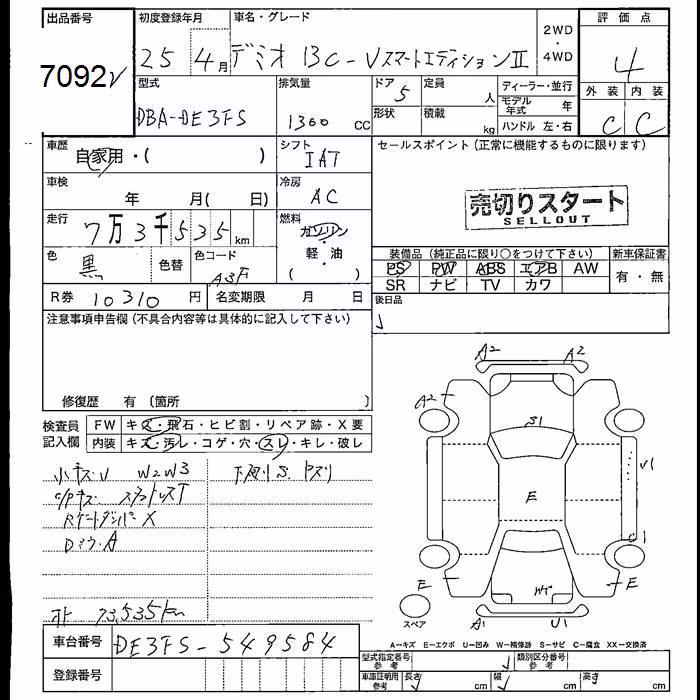 出品番号 初度登録年月 車名・グレード 評価点
7092 25 4月 デミオ 13C-Vスマートエディション II 2WD・4WD 4
型式 排気量 ドア 5 定員 人 ディーラー・並行 外装 内装
DBA-DE3FS 1300 CC 形状 積載 kg モデル年式 年 C C
ハンドル 左・右
車歴 自家用・( ) シフト IAT セールスポイント(正常に機能するものに限ります)
車検 年 月( 日) 冷房 AC
売切りスタート
SELLOUT
走行 7万3千535km 燃料 ガソリン・軽・油 ( )
色 黒 色替 色コード A3F
装備品(純正品に限り○をつけて下さい) 新車保証書
PS PW ABS エアB AW 有・無
SR ナビ TV カワ
R券 10310円 名変期限 月 日 後日品
注意事項申告欄(不具合内容等は具体的に記入して下さい)
修復歴 有〔箇所 〕
検査員 FW キズ・飛石・ヒビ割・リペア跡・X要
記入欄 内装 キズ・汚レ・コゲ・穴・スレ・キレ・破レ
小キズU W2W3 下廻りS.
Rゲートダンパー X
A2 A2
A2
S1
U1
E
C1
E E
A1 U1
スペア
73,535km
A-キズ E-エクボ U-凹み W-補修跡 S-サビ C-腐食 XX-交換済
車台番号 DE3FS-549584
型式指定番号 参考 類別区分番号 参考
登録番号 車庫証明用 参考 長さ cm 幅 cm 高さ cm